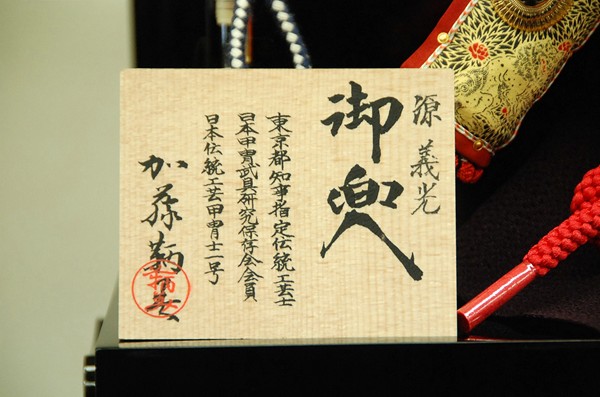 源義光
御兜
東京都知事指定伝統工芸士
日本甲冑武具研究保存会会員
日本伝統工芸甲冑士一号
加藤鞆美